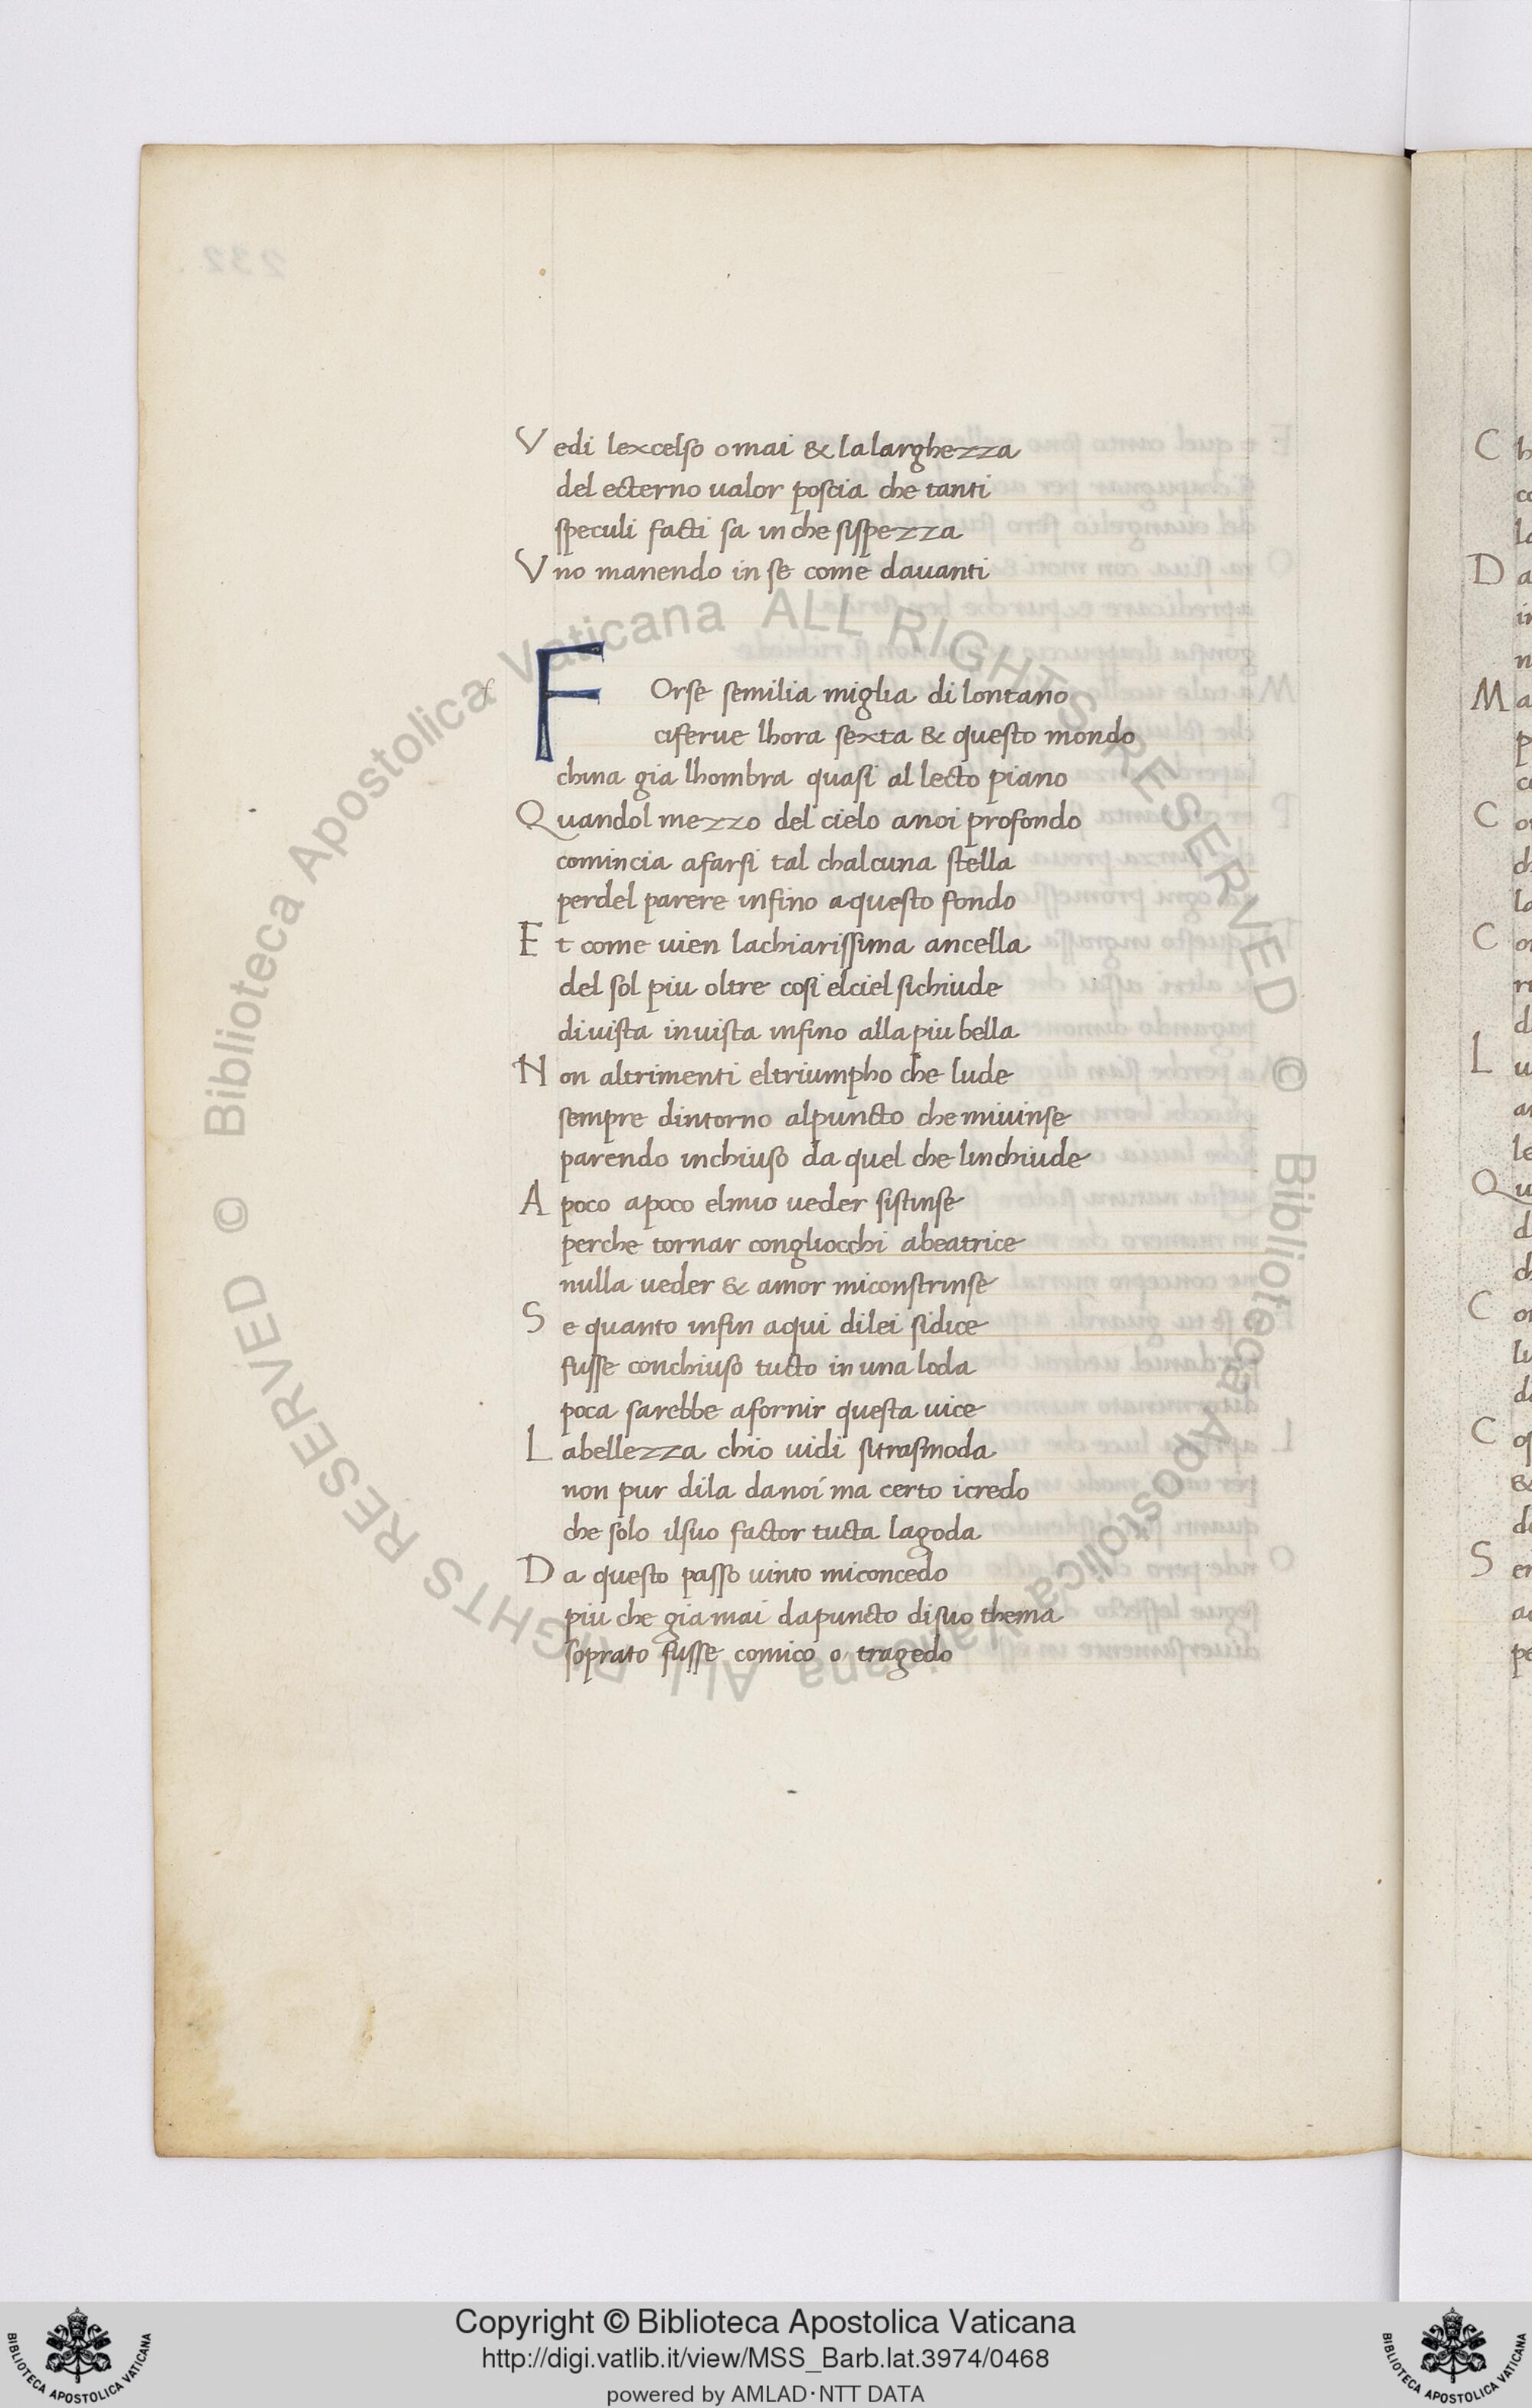 Vedi lexcelso omai & la larghezza
del ecterno ualor poscia che tanti
speculi facti sa in che sispezza
Vno manendo in se come dauanti
FOrse semilia miglia di lontano
ciferue lhora sexta & questo mondo
china gia lhombra quasi al lecto piano
Quandol mezzo del cielo anoi profondo
comincia afarsi tal chalcuna stella
perdel parere infino aquesto fondo
Et come uien lachiarissima ancella
del sol piu oltre cosi elciel sichiude
diuista inuista infino alla piu bella
Non altrimenti eltriumpho che lude
sempre dintorno alpuncto che miuinse
parendo inchiuso da quel che linchiude
A poco apoco elmio ueder sistinse
perche tornar congliocchi abeatrice
nulla ueder & amor miconstrinse
Se quanto infin aqui dilei sidice
fusse conchiuso tucto in una loda
poca sarebbe afornir questa uice
Labellezza chio uidi sitrasmoda
non pur dila danoi ma certo icredo
che solo ilsuo factor tucta lagoda
Da questo passo uinto miconcedo
piu che gia mai dapuncto disuo thema
soprato fusse comico o tragedo
Copyright © Biblioteca Apostolica Vaticana
http://digi.vatlib.it/view/MSS_Barb.lat.3974/0468
powered by AMLAD·NTT DATA
© Biblioteca Apostolica Vaticana ALL RIGHTS RESERVED
© Biblioteca Apostolica Vaticana ALL RIGHTS RESERVED
BIBLIOTECA APOSTOLICA VATICANA
BIBLIOTECA APOSTOLICA VATICANA